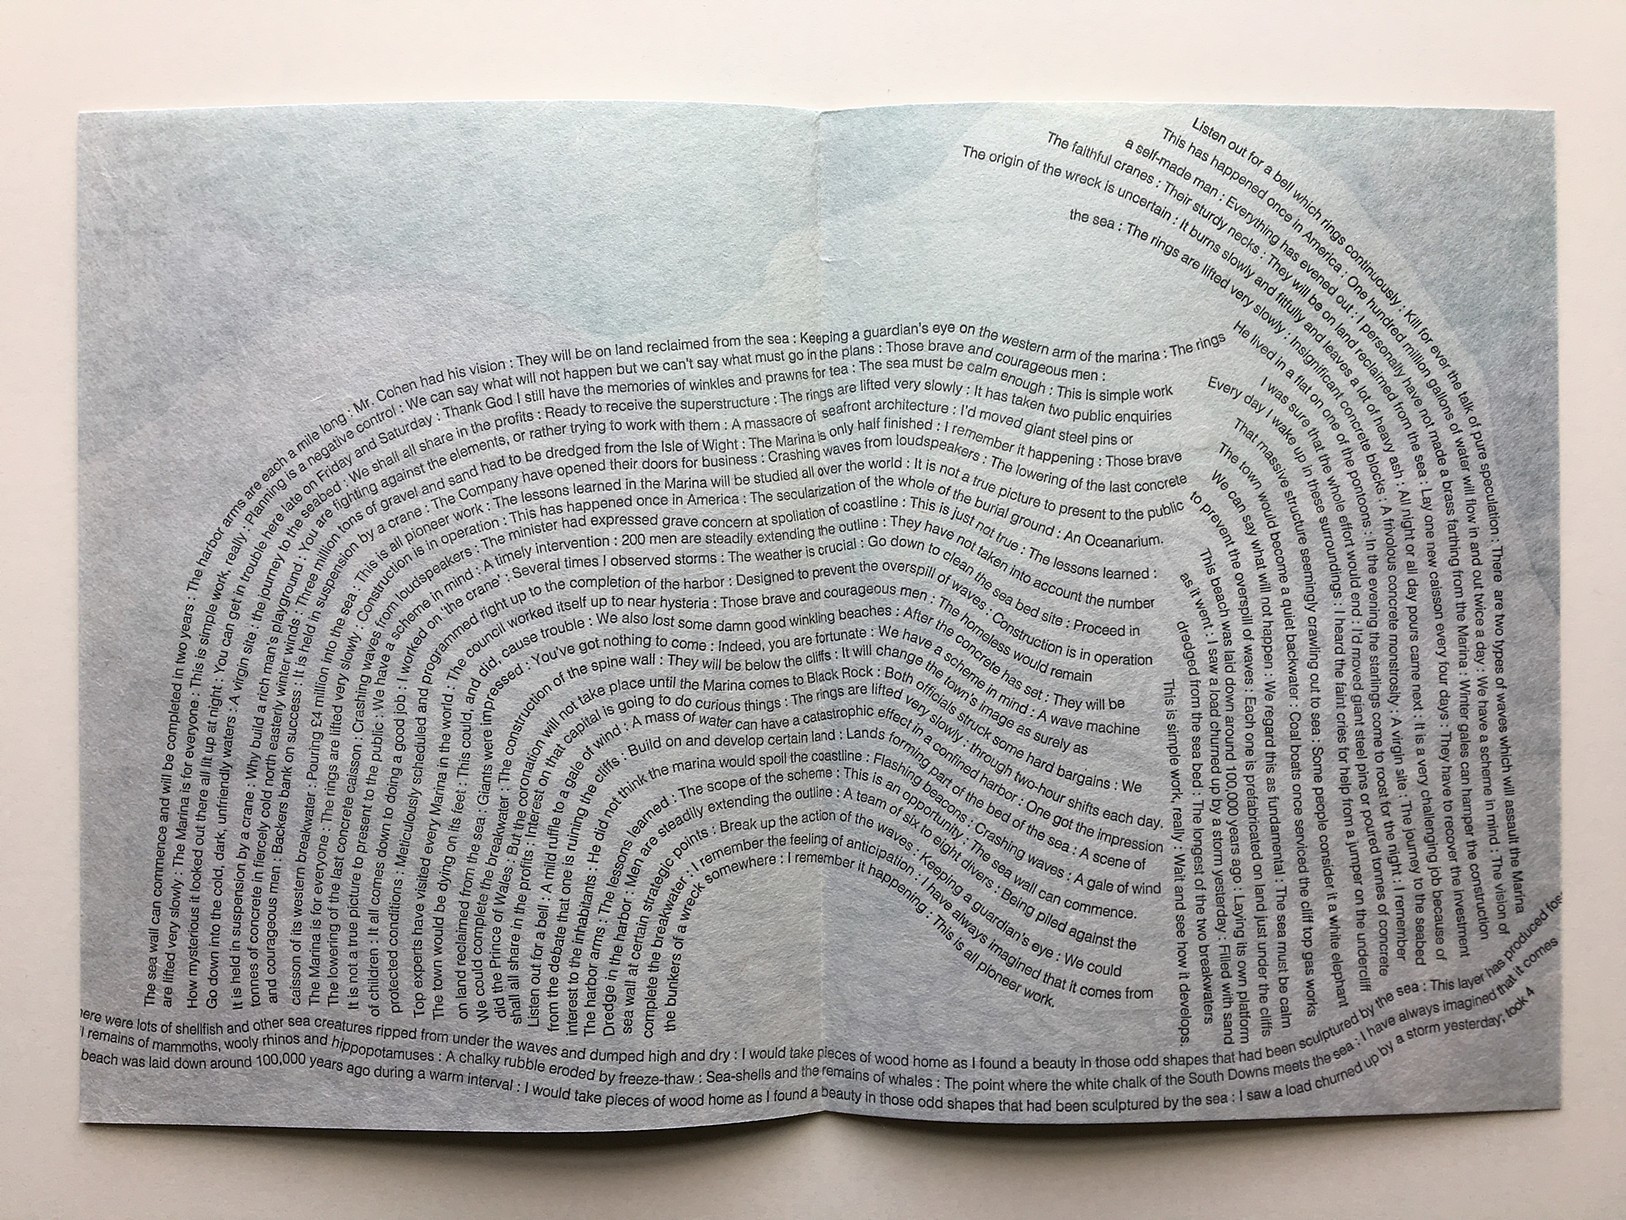 The sea wall can commence and will be completed in two years : The harbor arms are each a mile long : Mr. Cohen had his vision : They will be on land reclaimed from the sea : Keeping a guardian's eye on the western arm of the marina : The rings
are lifted very slowly : The Marina is for everyone : This is simple work, really : Planning is a negative control : We can say what will not happen but we can't say what must go in the plans : Those brave and courageous men :
How mysterious it looked out there all lit up at night : You can get in trouble here late on Friday and Saturday : Thank God I still have the memories of winkles and prawns for tea : The sea must be calm enough : This is simple work
Go down into the cold, dark, unfriendly waters : A virgin site : the journey to the seabed : We shall all share in the profits : Ready to receive the superstructure : The rings are lifted very slowly : It has taken two public enquiries
It is held in suspension by a crane : Why build a rich man's playground : You are fighting against the elements, or rather trying to work with them : A massacre of seafront architecture : I'd moved giant steel pins or
tonnes of concrete in fiercely cold north easterly winter winds : Three million tons of gravel and sand had to be dredged from the Isle of Wight : The Marina is only half finished : I remember it happening : Those brave
and courageous men : Backers bank on success : It is held in suspension by a crane : The Company have opened their doors for business : Crashing waves from loudspeakers : The lowering of the last concrete
caisson of its western breakwater : Pouring £4 million into the sea : This is all pioneer work : The lessons learned in the Marina will be studied all over the world : It is not a true picture to present to the public
The Marina is for everyone : The rings are lifted very slowly : Construction is in operation : This has happened once in America : The secularization of the whole of the burial ground : An Oceanarium.
The lowering of the last concrete caisson : Crashing waves from loudspeakers : The minister had expressed grave concern at spoliation of coastline : This is just not true : The lessons learned :
It is not a true picture to present to the public : We have a scheme in mind : A timely intervention : 200 men are steadily extending the outline : They have not taken into account the number
of children : It all comes down to doing a good job : I worked on 'the crane' : Several times I observed storms : The weather is crucial : Go down to clean the sea bed site : Proceed in
protected conditions : Meticulously scheduled and programmed right up to the completion of the harbor : Designed to prevent the overspill of waves : Construction is in operation
Top experts have visited every Marina in the world : The council worked itself up to near hysteria : Those brave and courageous men : The homeless would remain
The town would be dying on its feet : This could, and did, cause trouble : We also lost some damn good winkling beaches : After the concrete has set : They will be
on land reclaimed from the sea : Giants were impressed : You've got nothing to come : Indeed, you are fortunate : We have a scheme in mind : A wave machine
We could complete the breakwater : The construction of the spine wall : They will be below the cliffs : It will change the town's image as surely as
did the Prince of Wales : But the coronation will not take place until the Marina comes to Black Rock : Both officials struck some hard bargains : We
shall all share in the profits : Interest on that capital is going to do curious things : The rings are lifted very slowly : through two-hour shifts each day.
Listen out for a bell : A mild ruffle to a gale of wind : A mass of water can have a catastrophic effect in a confined harbor : One got the impression
from the debate that one is ruining the cliffs : Build on and develop certain land : Lands forming part of the bed of the sea : A scene of
interest to the inhabitants : He did not think the marina would spoil the coastline : Flashing beacons : Crashing waves : A gale of wind
The harbor arms : The lessons learned : The scope of the scheme : This is an opportunity : The sea wall can commence.
Dredge in the harbor : Men are steadily extending the outline : A team of six to eight divers : Being piled against the
sea wall at certain strategic points : Break up the action of the waves : Keeping a guardian's eye : We could
complete the breakwater : I remember the feeling of anticipation : I have always imagined that it comes from
the bunkers of a wreck somewhere : I remember it happening : This is all pioneer work.
Listen out for a bell which rings continuously : Kill for ever the talk of pure speculation : There are two types of waves which will assault the Marina
This has happened once in America : One hundred million gallons of water will flow in and out twice a day : We have a scheme in mind : The vision of
a self-made man : Everything has evened out : I personally have not made a brass farthing from the Marina : Winter gales can hamper the construction
The faithful cranes : Their sturdy necks : They will be on land reclaimed from the sea : Lay one new caisson every four days : They have to recover the investment
The origin of the wreck is uncertain : It burns slowly and fitfully and leaves a lot of heavy ash : All night or all day pours came next : It is a very challenging job because of
the sea : The rings are lifted very slowly : Insignificant concrete blocks : A frivolous concrete monstrosity : A virgin site : The journey to the seabed
He lived in a flat on one of the pontoons : In the evening the starlings come to roost for the night : I remember
I was sure that the whole effort would end : I'd moved giant steel pins or poured tonnes of concrete
Every day I wake up in these surroundings : I heard the faint cries for help from a jumper on the undercliff
That massive structure seemingly crawling out to sea : Some people consider it a white elephant
The town would become a quiet backwater : Coal boats once serviced the cliff top gas works
We can say what will not happen : We regard this as fundamental : The sea must be calm
to prevent the overspill of waves : Each one is prefabricated on land just under the cliffs
This beach was laid down around 100,000 years ago : Laying its own platform
as it went : I saw a load churned up by a storm yesterday : Filled with sand
dredged from the sea bed : The longest of the two breakwaters
This is simple work, really : Wait and see how it develops.
here were lots of shellfish and other sea creatures ripped from under the waves and dumped high and dry : I would take pieces of wood home as I found a beauty in those odd shapes that had been sculptured by the sea : This layer has produced fos
l remains of mammoths, wooly rhinos and hippopotamuses : A chalky rubble eroded by freeze-thaw : Sea-shells and the remains of whales : The point where the white chalk of the South Downs meets the sea : I have always imagined that it comes
beach was laid down around 100,000 years ago during a warm interval : I would take pieces of wood home as I found a beauty in those odd shapes that had been sculptured by the sea : I saw a load churned up by a storm yesterday; took 4